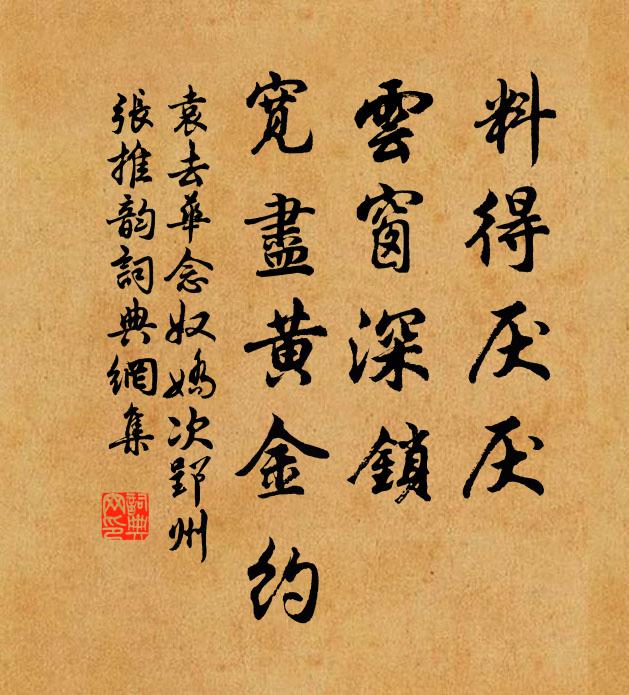 料得厌厌
雲窗深鎖
寬盡黄金約
袁去華念奴嬌次郢州
張推韵詞典網集
詞典网印